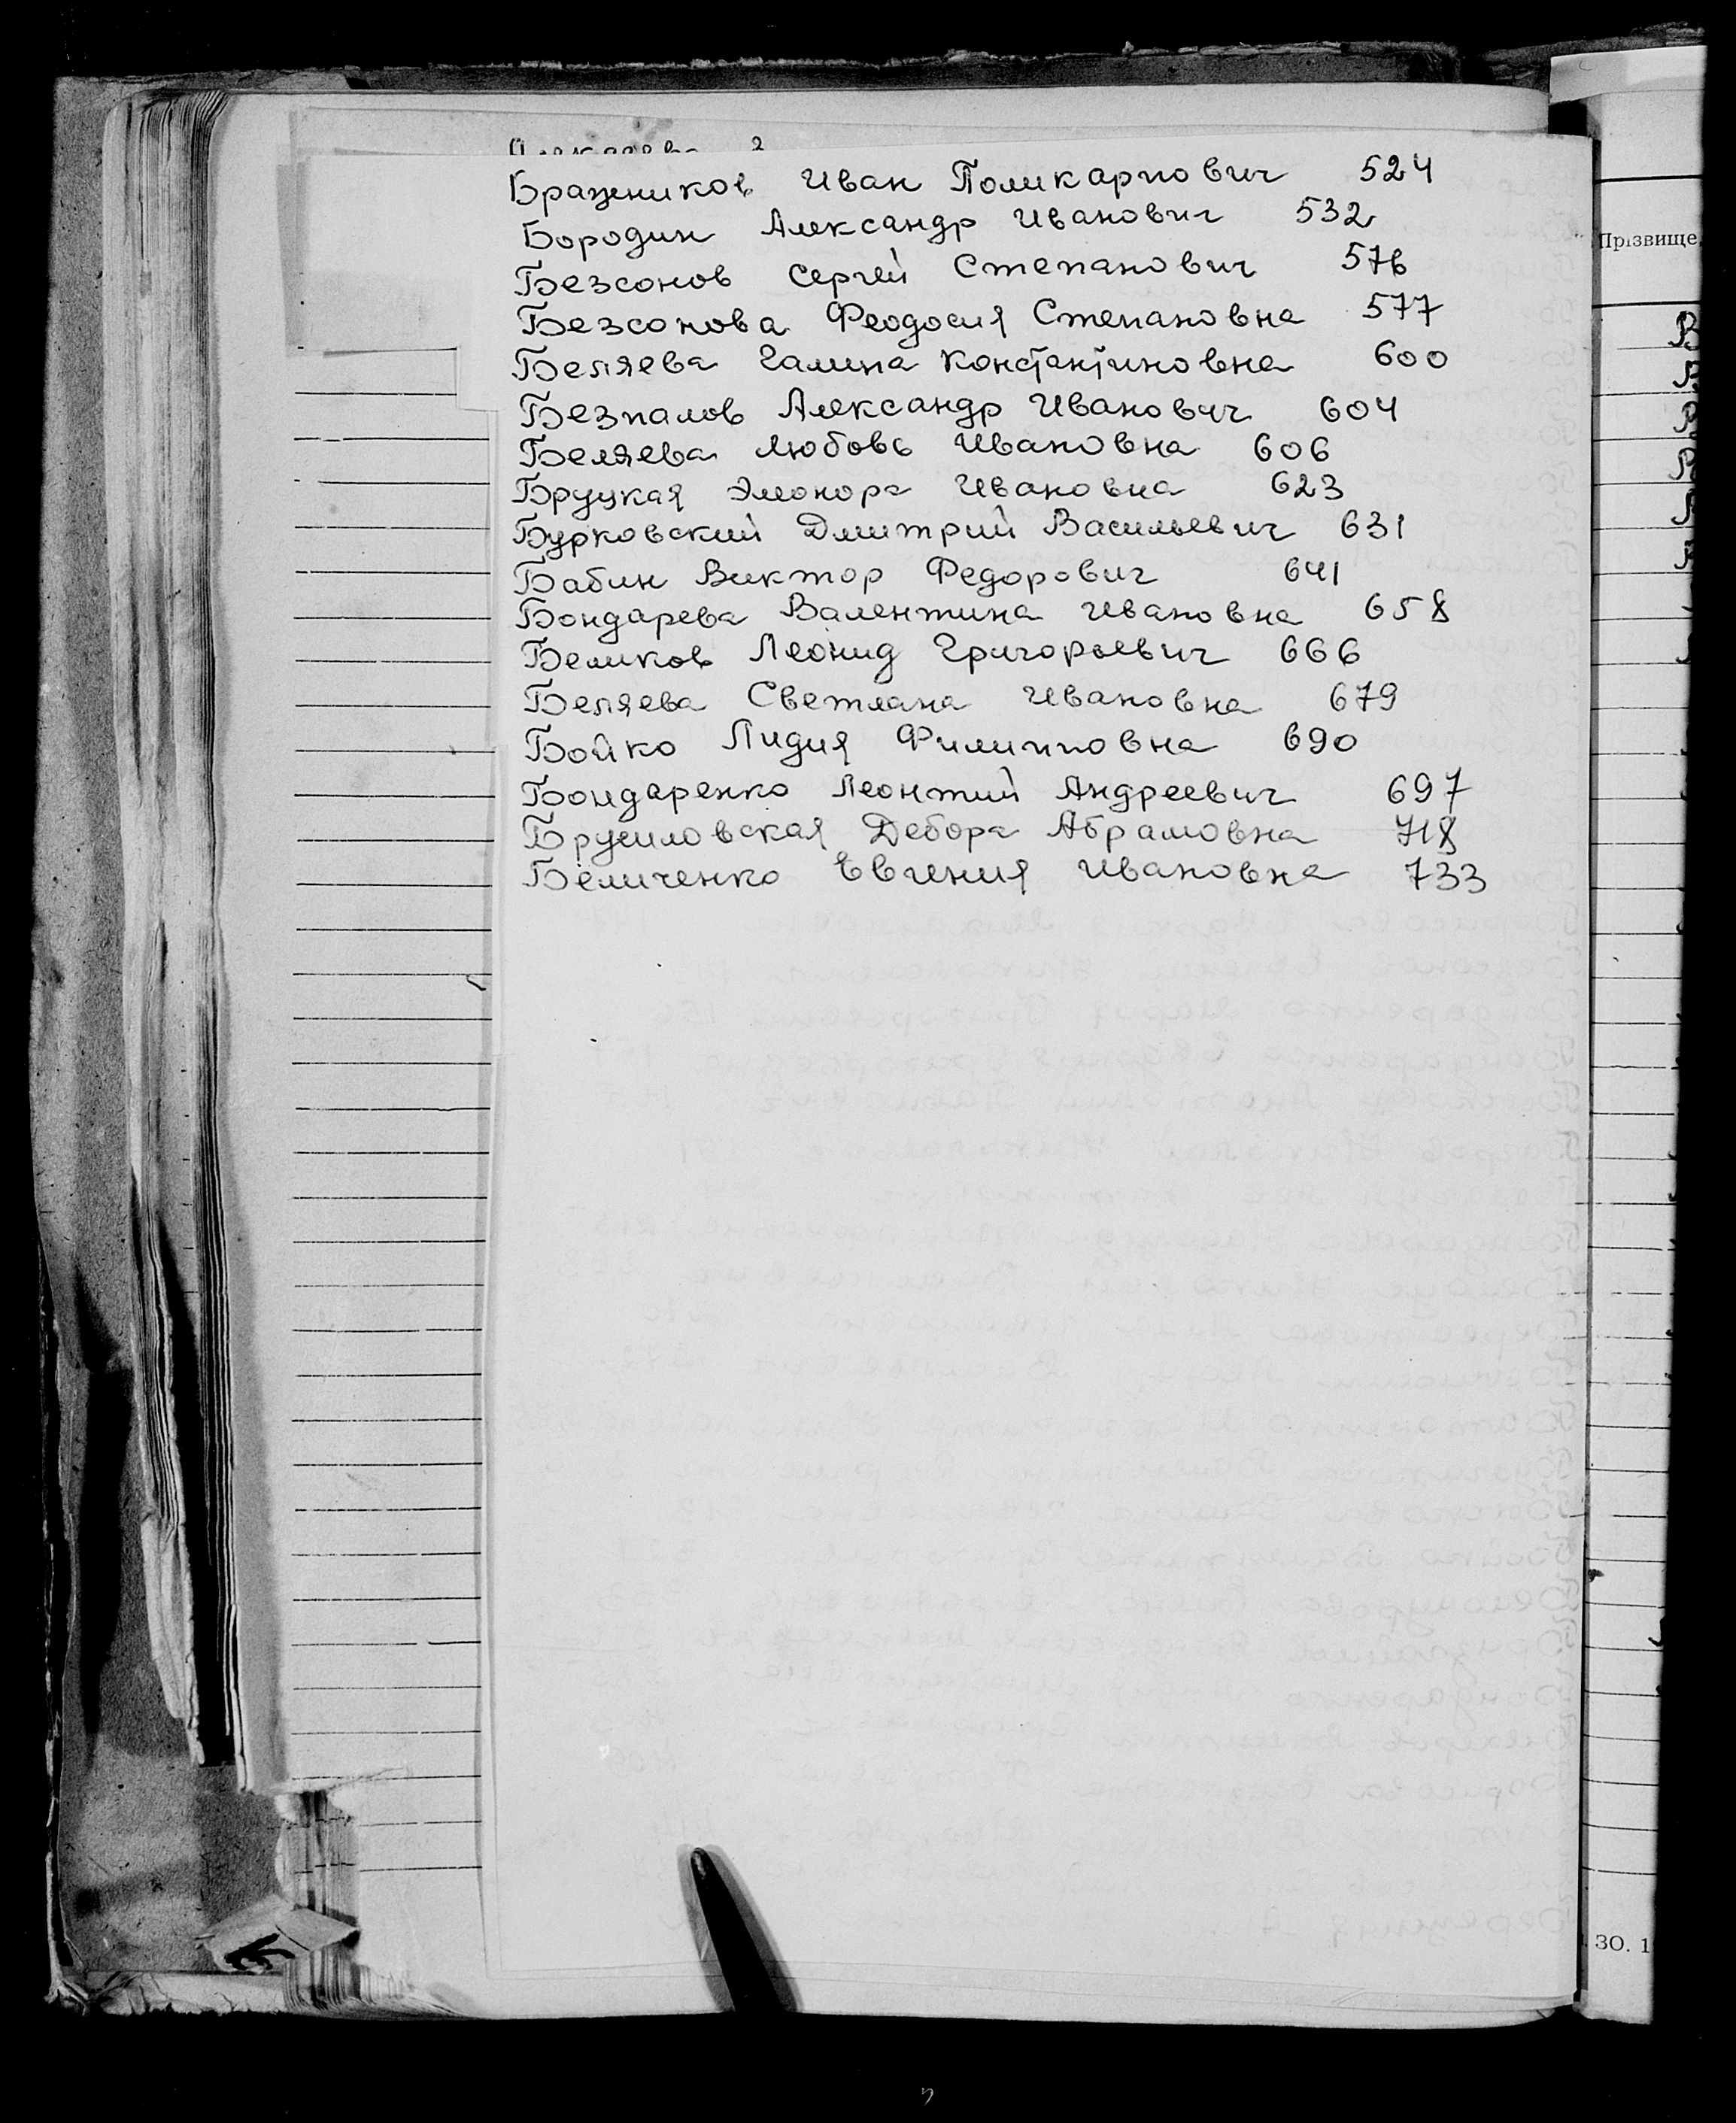 Бражников Иван Поликарпович 524
Бородин Александр Иванович 532
Безсонов Сергей Степанович 576
Безсонова Феодосия Степановна 577
Беляева Галина Константиновна 600
Безпалов Александр Иванович 604
Беляева Любовь Ивановна 606
Бруцкая Элеонора Ивановна 623
Бурковский Дмитрий Васильевич 631
Бабин Виктор Федорович 641
Бондарева Валентина Ивановна 658
Беликов Леонид Григорьевич 666
Беляева Светлана Ивановна 679
Бойко Лидия Филипповна 690
Бондаренко Леонтий Андреевич 697
Брусиловская Дебора Абрамовна 718
Беличенко Евгения Ивановна 733
Прізвище,
30. 1